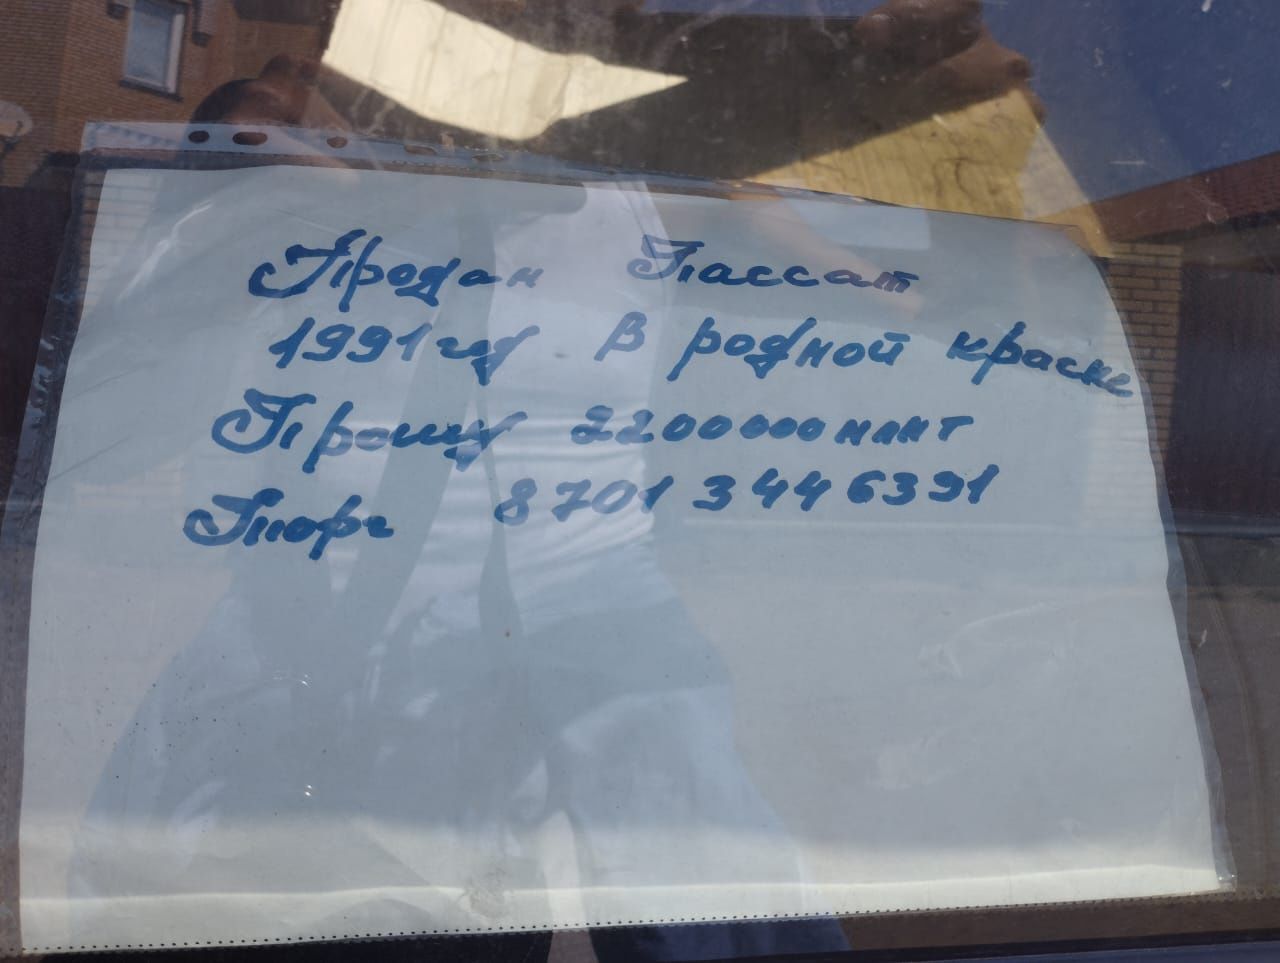 Продан Пассат
1991 год В родной краске
Прошу 2200000 млнт
Торг 8701 344 6391